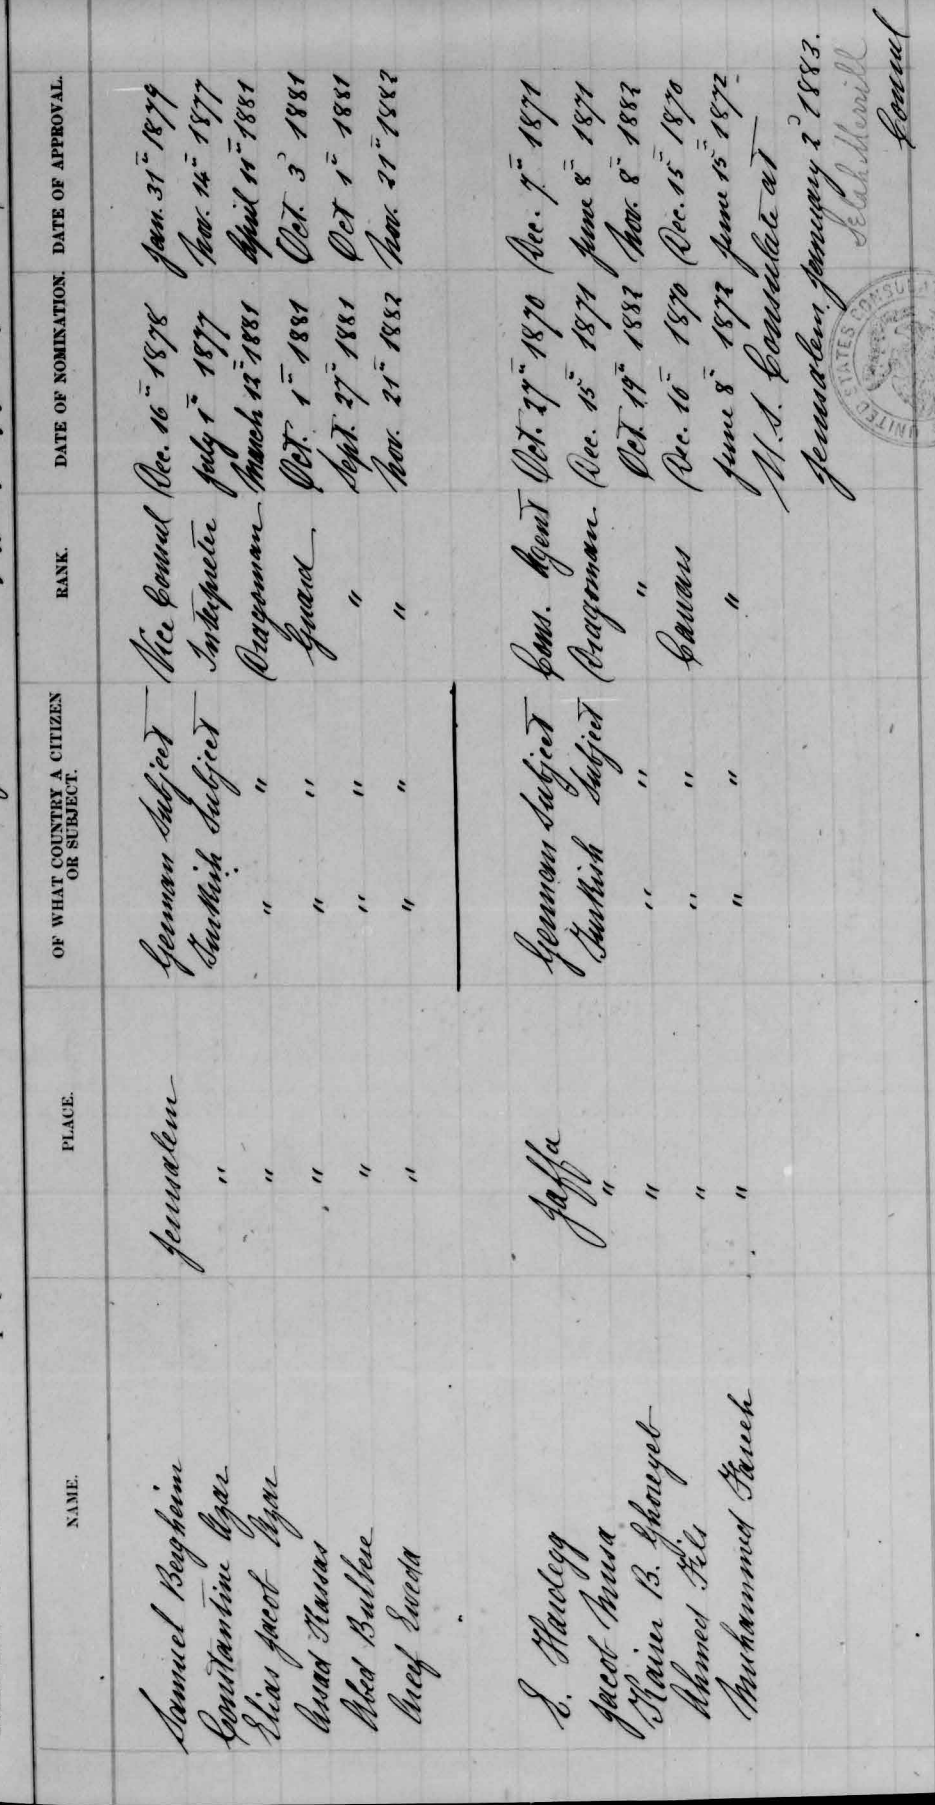 NAME. PLACE. OF WHAT COUNTRY A CITIZEN OR SUBJECT. RANK. DATE OF NOMINATION. DATE OF APPROVAL.
Samuel Bergheim Jerusalem German Subject Vice Consul Dec. 16" 1878 Jan. 31" 1879
Constantine Azar " Turkish Subject Interpreter July 1" 1877 Nov. 14" 1877
Elias Jacob Azar " " " Dragoman March 12" 1881 April 15" 1881
Assad Kassas " " " Guard Oct. 1" 1881 Oct. 3d 1881
Abed " " " " Sept. 27" 1881 Oct 1" 1881
Aref Sweda " " " " Nov. 21" 1882 Nov. 21" 1882
E. Hardegg Jaffa German Subject Cons. Agent Oct. 27" 1870 Dec. 7" 1871
Jacob Musa " Turkish Subject Dragoman Dec. 15" 1871 June 8" 1871
Kaiser B. Ghoruyeb " " " " Oct. 19" 1882 Nov. 8" 1882
Ahmed Fils " " " Cavass Dec. 10" 1870 Dec. 15" 1870
Muhammed " " " " June 8" 1872 June 15" 1872
U.S. Consulate at
Jerusalem, January 2d 1883.
Selah Merrill
Consul
UNITED STATES CONSUL